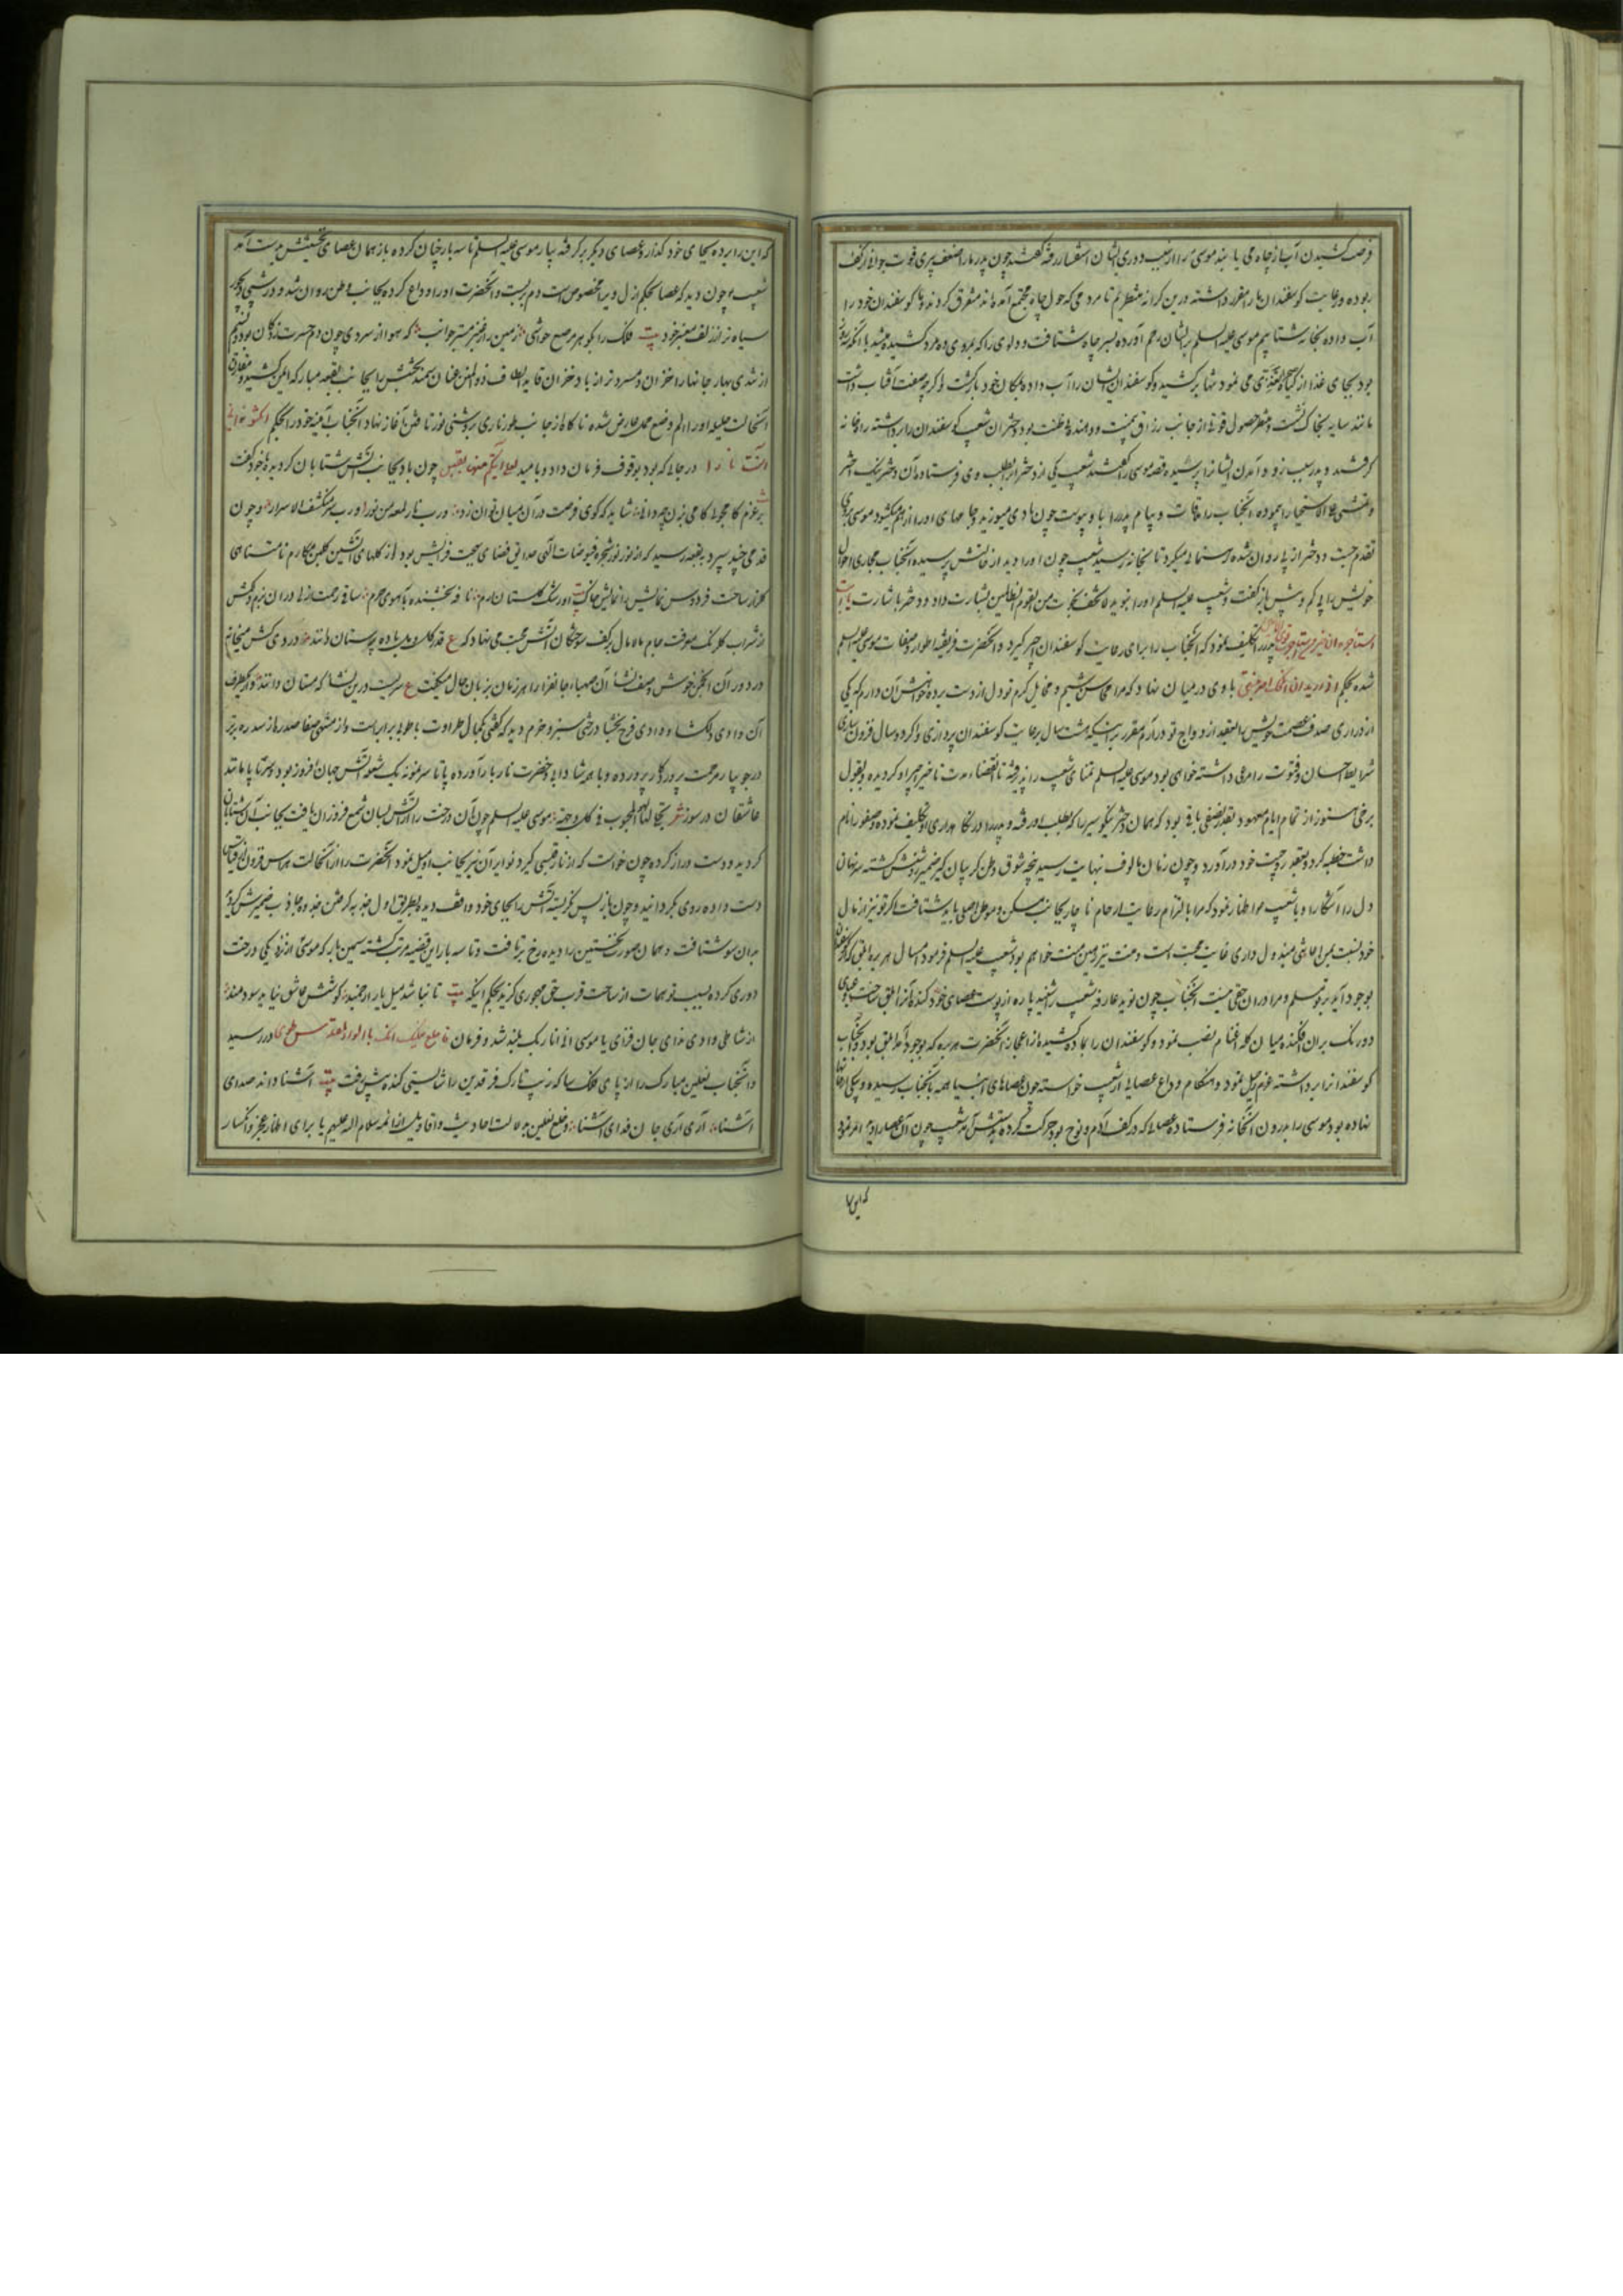 فرصت کشیدن آب از چاه می یابند موسی را از سبب دوری ایشان استفسار رفته گفتند چون پدر ما را ضعف پیری قوت جوانی از کف
ربوده ورعایت کوسفندان بما مقرر داشته درین کرانه منتظریم تا مردمی که حول چاه مجتمع آمده اند متفرق کردند و ما کوسفندان خود را
آب داده بخانه شتابیم موسی علیه السلم بر ایشان رحم آورده بسر چاه شتافت و دلوی را که
بود بجای غذا از کیاه می نمود تنها برکشید و کوسفندان ایشان را آب داده بمکان خود بازکشت و اکرچه صفت آفتاب داشت
مانند سایه بخاک نشست و منتظر حصول قوتها از جانب رزاق و دختران شعیب کوسفندان را برداشته راه خانه
کرفتند و پدر سبب زود آمدن ایشانرا پرسیده قصه موسی را گفتند شعیب یکی از دو دختر را بطلب وی فرستاده آن دختر نیک اختر
آنجناب را ملاقات و پیام پدر را با و پیوست چون بادی میوزید و جامهای او را از هم میکشود موسی بروی
تقدم جست و دختر از پی روان شده رهنمائی میکرد تا بخانه رسید شعیب چون او را دید از حالش پرسیده آنجناب مجاری احوال
خویش را بی کم و بیش باز گفت و شعیب علیه السلم او را بنوید لا تخف نجوت من القوم الظالمین بشارت داد و دختر باشارت یا ابت
استاجره ان خیر من استاجرت پدر را تکلیف نمود که آنجناب را برای رعایت کوسفندان اجیر کیرد و آنحضرت فریفته اطوار و صفات موسی علیه السلم
شده بحکم انی ارید ان انکحک احدی ابنتی با وی در میان نهاد که مرا محاسن شیم و مخایل کرم تو دل از دست برده خواهش آن دارم که یکی
از دراری صدف عصمت خویش را بعقد ازدواج تو درآرم مقرر بر اینکه هشت سال برعایت کوسفندان پردازی و اکر دو سال فزون سازی
شرایط احسان و فتوت را مرعی داشته خواهی بود موسی علیه السلم تمنای شعیب را پذیرفته تا انقضاء مدت تاخیر اجیر او کردیده و بقول
برخی هنوز از تمام ایام معهود بقدر نصفی باقی بود که همان دختر نیکو سیر را که بطلب او رفته و پدر را در نکاهداری او تکلیف نموده و صفورا نام
داشت خطبه کرد و بعقد زوجیت خود درآورد و چون زمان مالوف بنهایت رسید پنجه شوق وطن کریبان کیر ضمیر روشنش کشته سر نهان
دل را آشکارا و با شعیب اظهار نمود که مرا بالتزام رعایت ارحام ناچار بجانب مسکن و موطن اصلی باید شتافت اکر تو نیز از مال
خود نسبت بمن اعانتی مبذول داری غایت محبت است و منت نیز رهین منت خواهم بود شعیب علیه السلم فرمود امسال هر بره ابلق که از کوسفندان
بوجود آید بر تو مسلم و مرا در آن حقی نیست آنجناب چون نوید عارفه شعیب را شنید پاره از پوست عصای خود کنده آنرا ابلق ساخت و عبای
دو رنک بران افکنده میان کله اغنام نصب نمود و کوسفندان را بماده کشیده از اعجاز آنحضرت هر بره که بوجود آمد ابلق بود و آنجناب
کوسفندانرا برداشته عزم رحیل نمود و هنکام وداع عصائی از شعیب خواسته چون عصاهای انبیا همه بآنجناب رسیده و یکی از خانها
نهاده بود موسی را بدرون آنخانه فرستاده عصائی که در کف آدم و نوح بود حرکت کرده بدستش آمد شعیب چون آن عصا را دید امر نمود
که این را
که این را برده بجای خود کذار و عصای دیکر برکرفته بیار موسی علیه السلم تا سه بار چنان کرده باز همان عصای نخستینش بدست آمد
شعیب چون دید که عصا بحکم ازل ویرا مخصوص است دم بربست و آنحضرت او را وداع کرده بجانب وطن روان شد و در شبی دیجور
سیاه تر از زلف معنبر خود بیت فلک را بکوهر مرصع حواشی زمین را بعنبر مستر جوانب که هوا از سردی چون دم حسرت زدکان بود و نسیم
از تندی بهار جانها را خزان و مسرد تر از باد خزان بجانب بقعه مبارکه ایمن کشید و مقارن
آنحالت حلیله او را الم وضع حمل عارض شده ناکاه از جانب طور ناری بروشنی نور تافتن آغاز نهاد آنجناب اهلبیت خود را بحکم امکثوا انی
انست نارا در جائی که بود بوقوف فرمان داد و بامید لعلی آتیکم منها بقبس چون باد بجانب آتش شتابان کردید و با خود گفت
بر عزم کامجوئی کامی بزن چه دانی شاید که کوی فرصت در آن میان توان زد و رب نار لمعه من نور و رب سر منکشف الاسرار و چون
قدمی چند سپرد به بقعه رسید که از نور نور شجره و فیوضات الهی حدایق فضای بهجت فزایش بود از کلهای آتشین کلبن مکارم نامتناهی
کلزار ساحت فردوس نمایش را نمایش خاکش آبروی کلستان ارم نافه بخشنده بآهوی حرم ساقی رحمت ازلی در آن بزم دلکش
از شراب کلرنک معرفت جام مالامال بر کف سوختکان آتش محبت می نهاد که ع قدر کل و مل باده پرستان دانند و دردی کش میخانه
درد در آن انجمن خوش وصف نشأ آن صهباء جانفزا را هر زمان بزبان حال میکفت ع سریست درین نشا که مستان دانند و از یکطرف
آن وادی دلکشا و وادی فرح بخشا درختی سبز و خرم دید که کفتی بکمال طراوت با طوبی برابر است و از منتهی صفا صدره از سدره برتر
در جویبار مرحمت پروردکار پرورده و با همه شادابی و خضرت نار بار آورده پا تا سر نمونه یک شعله آتش جهان افروز بود و سر تا پا مانند
عاشقان در سوز شعر تجلی لها المحبوب فی کل وجهة موسی علیه السلم چون آن درخت را از آتش بسان شمع فروزان یافت بجانب آن شتابان
کردیده دست دراز کرده چون خواست که از نار قبسی کیرد نوایر آن نیز بجانب او میل نمود آنحضرت را از آنحالت هراس فزون از قیاس
دست داده روی بکردانید و چون باز پس نکریست آتش را بجای خود واقف دید و بطریق اول جذبه کرمش جاذب ضمیرش کردید
بدان سو شتافت و همان صورت نخستین را دیده رخ برتافت و تا سه بار این قضیه مرتب کشته سیمین بار که موسی از نزدیکی درخت
دوری کرده بسبب توهمات از ساحت قرب حق مهجوری کزید بحکم اینکه بیت تا نباشد میل یار ارجمند کوشش عاشق نیاید سودمند
از شاطی وادی ندای جان فزای یا موسی انی انا ربک بلند شد و فرمان فاخلع نعلیک انک بالواد المقدس طوی در رسید
و آنجناب نعلین مبارک را از پای فلک سا که زیب تارک فرقدین را شایستی کنده پیش رفت بیت آشنا داند صدای
آشنا آری آری جان فدای آشنا و خلع نعلین بدلالت احادیث و اقاویل ائمه سلام الله علیهم یا برای اظهار عجز و انکسار